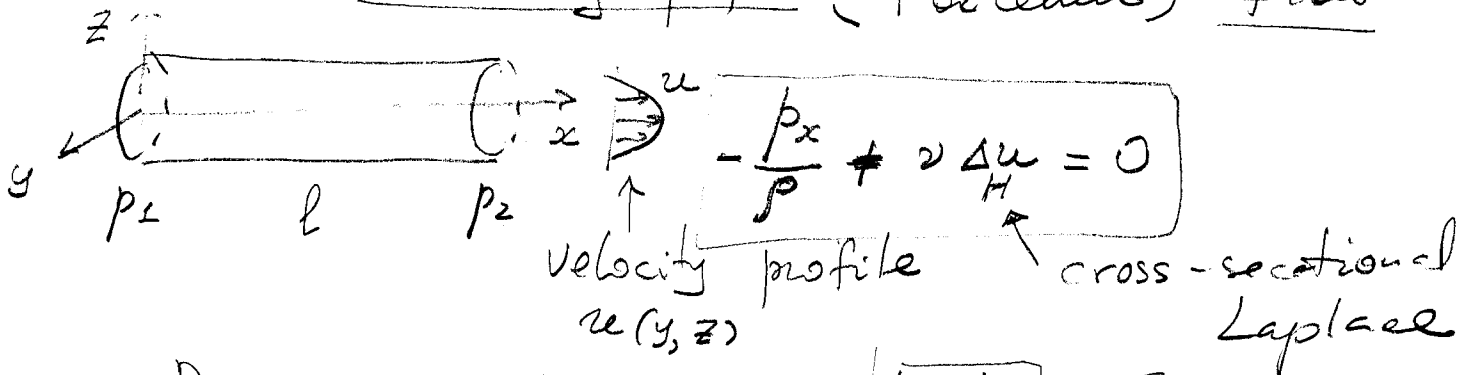 z
y x u
p1 l p2
- p_x/ρ + ν Δ_H u = 0
velocity profile
u(y, z)
cross-secational
Laplace